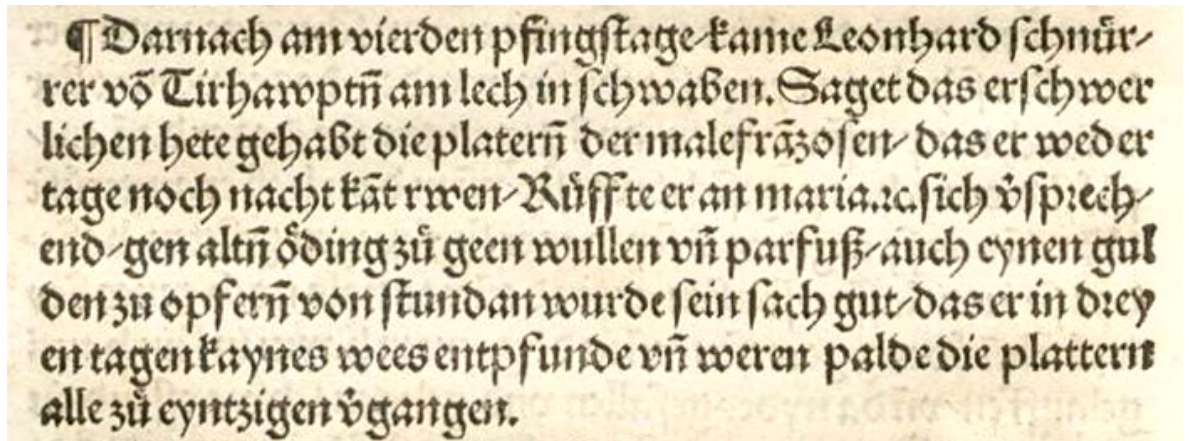 ¶ Darnach am vierden pfingſtage/ kame Leonhard ſchnür/
rer võ Tirhawptñ am lech in ſchwaben. Saget das er ſchwer
lichen hete gehabt die platern̄ der malefrãzoſen/ das er weder
tage noch nacht kãt rwen/ Rüffte er an maria.ꝛc. ſich v̊ſprech/
end/ gen altñ öding zů geen wullen vñ parfuß/ auch eynen gul
den zu opfern̄ von ſtundan wurde ſein ſach gut/ das er in drey
en tagen kaynes wees entpfunde vñ weren palde die plattern
alle zů eyntzigen v̊gangen.